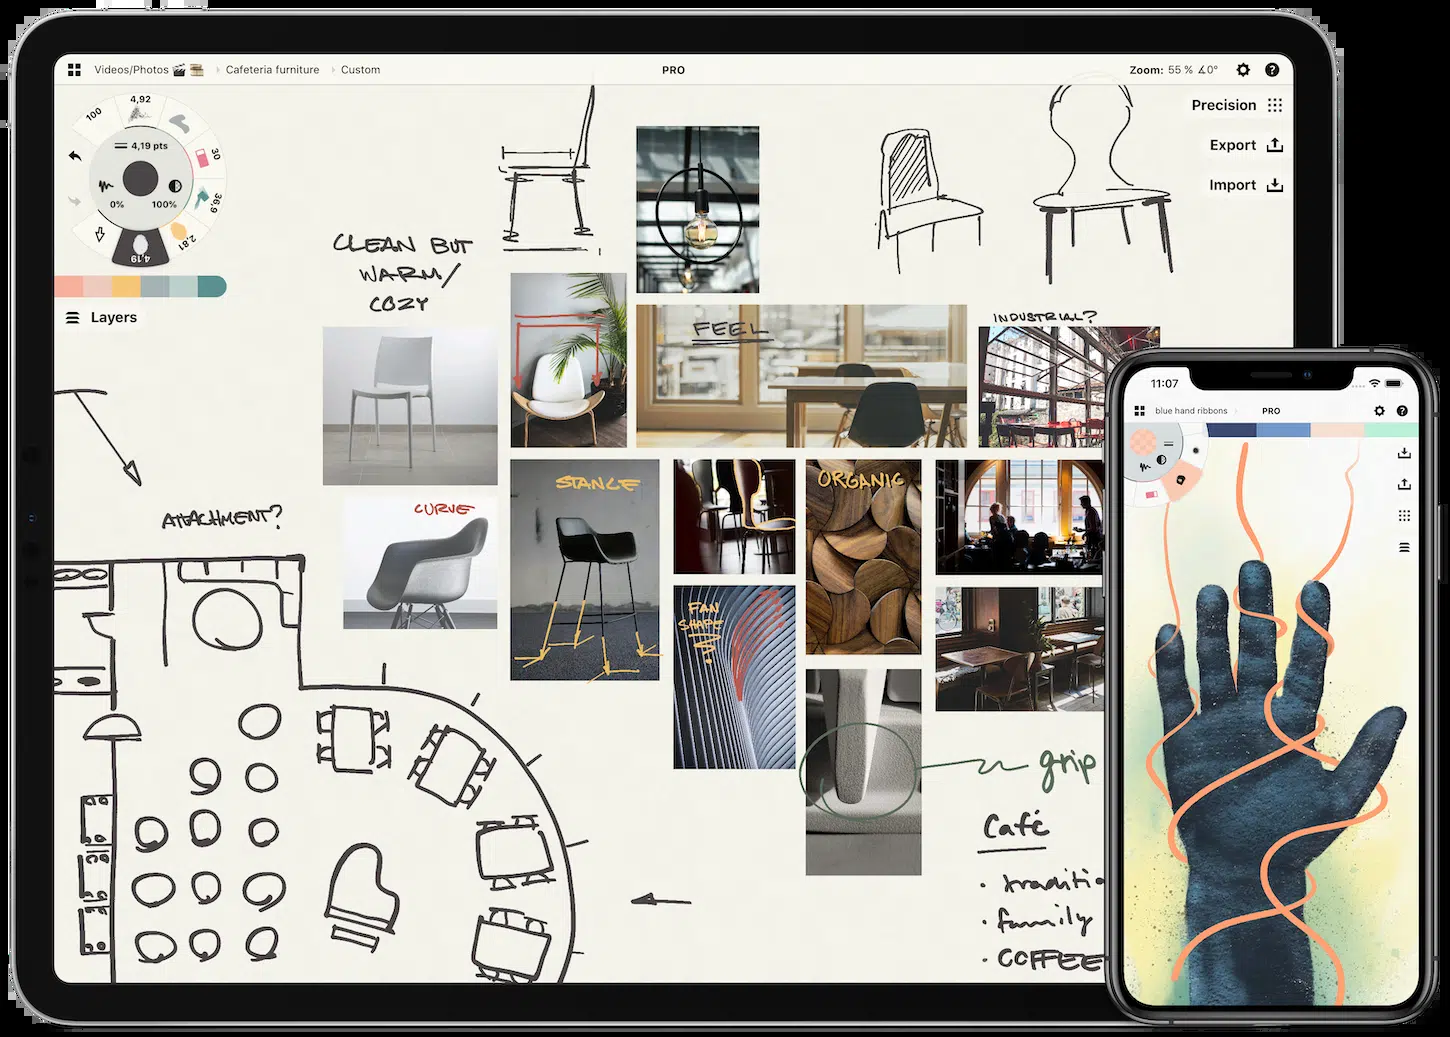 Videos/Photos Cafeteria furniture Custom
PRO
Zoom: 55 % ∡0°
Precision
Export
Import
4,92
100
30
4,19 pts
36,9
0% 100%
2,81
4,19
Layers
CLEAN BUT
WARM/
COZY
FEEL
INDUSTRIAL?
STANCE
CURVE
ORGANIC
ATTACHMENT?
FAN
SHAPE
grip
Café
· traditio
· family
· COFFEE
11:07
blue hand ribbons PRO